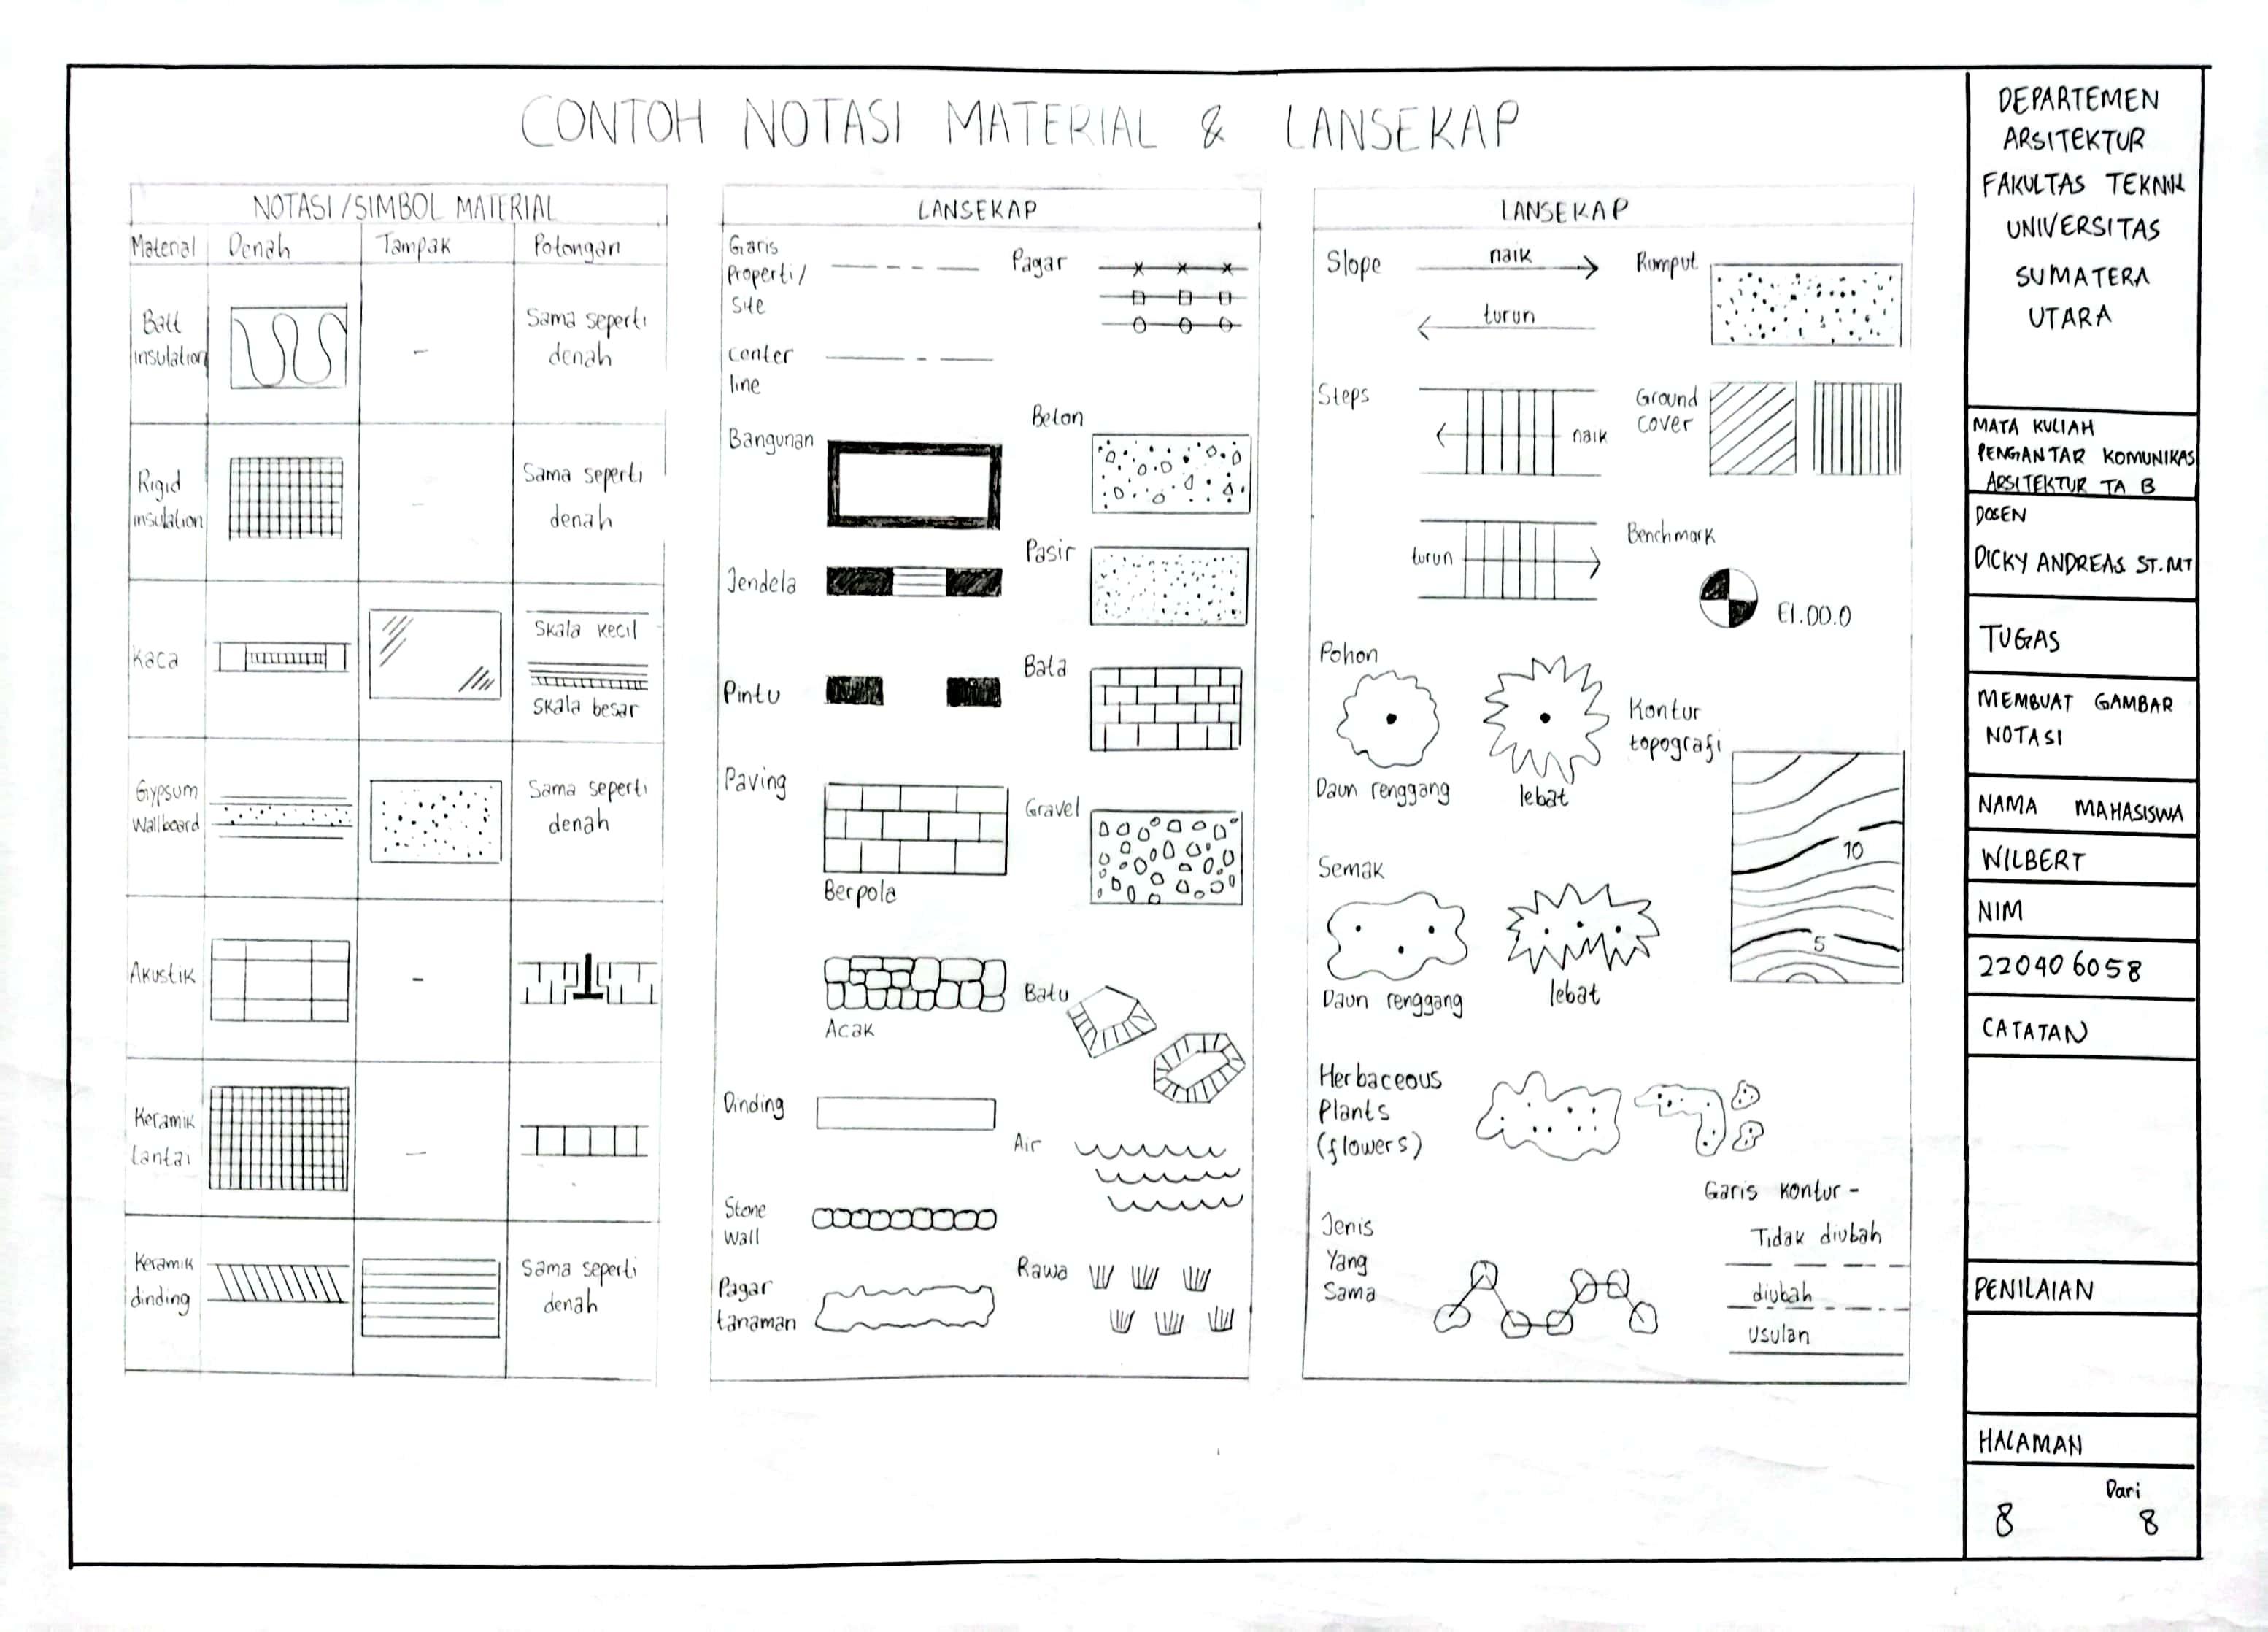 CONTOH NOTASI MATERIAL & LANSEKAP
NOTASI/SIMBOL MATERIAL
Material Denah Tampak Potongan
Batt
insulation
-
Sama seperti
denah
Rigid
insulation
-
Sama seperti
denah
Kaca
Skala kecil
Skala besar
Gypsum
Wallboard
Sama seperti
denah
Akustik
-
Keramik
Lantai
-
Keramik
dinding
Sama seperti
denah
LANSEKAP
Garis
Properti/
Site
Center
line
Bangunan
Jendela
Pintu
Paving
Berpola
Acak
Dinding
Stone
Wall
Pagar
tanaman
Pagar
Beton
Pasir
Bata
Gravel
Batu
Air
Rawa
LANSEKAP
Slope
naik
turun
Steps
naik
turun
Pohon
Daun renggang
lebat
Semak
Daun renggang
lebat
Herbaceous
Plants
(flowers)
Jenis
Yang
Sama
Rumput
Ground
cover
Benchmark
El.00.0
Kontur
topografi
10
5
Garis kontur -
Tidak diubah
diubah
usulan
DEPARTEMEN
ARSITEKTUR
FAKULTAS TEKNIK
UNIVERSITAS
SUMATERA
UTARA
MATA KULIAH
PENGANTAR KOMUNIKAS
ARSITEKTUR TA B
DOSEN
DICKY ANDREAS ST.MT
TUGAS
MEMBUAT GAMBAR
NOTASI
NAMA MAHASISWA
WILBERT
NIM
220406058
CATATAN
PENILAIAN
HALAMAN
Dari
8 8